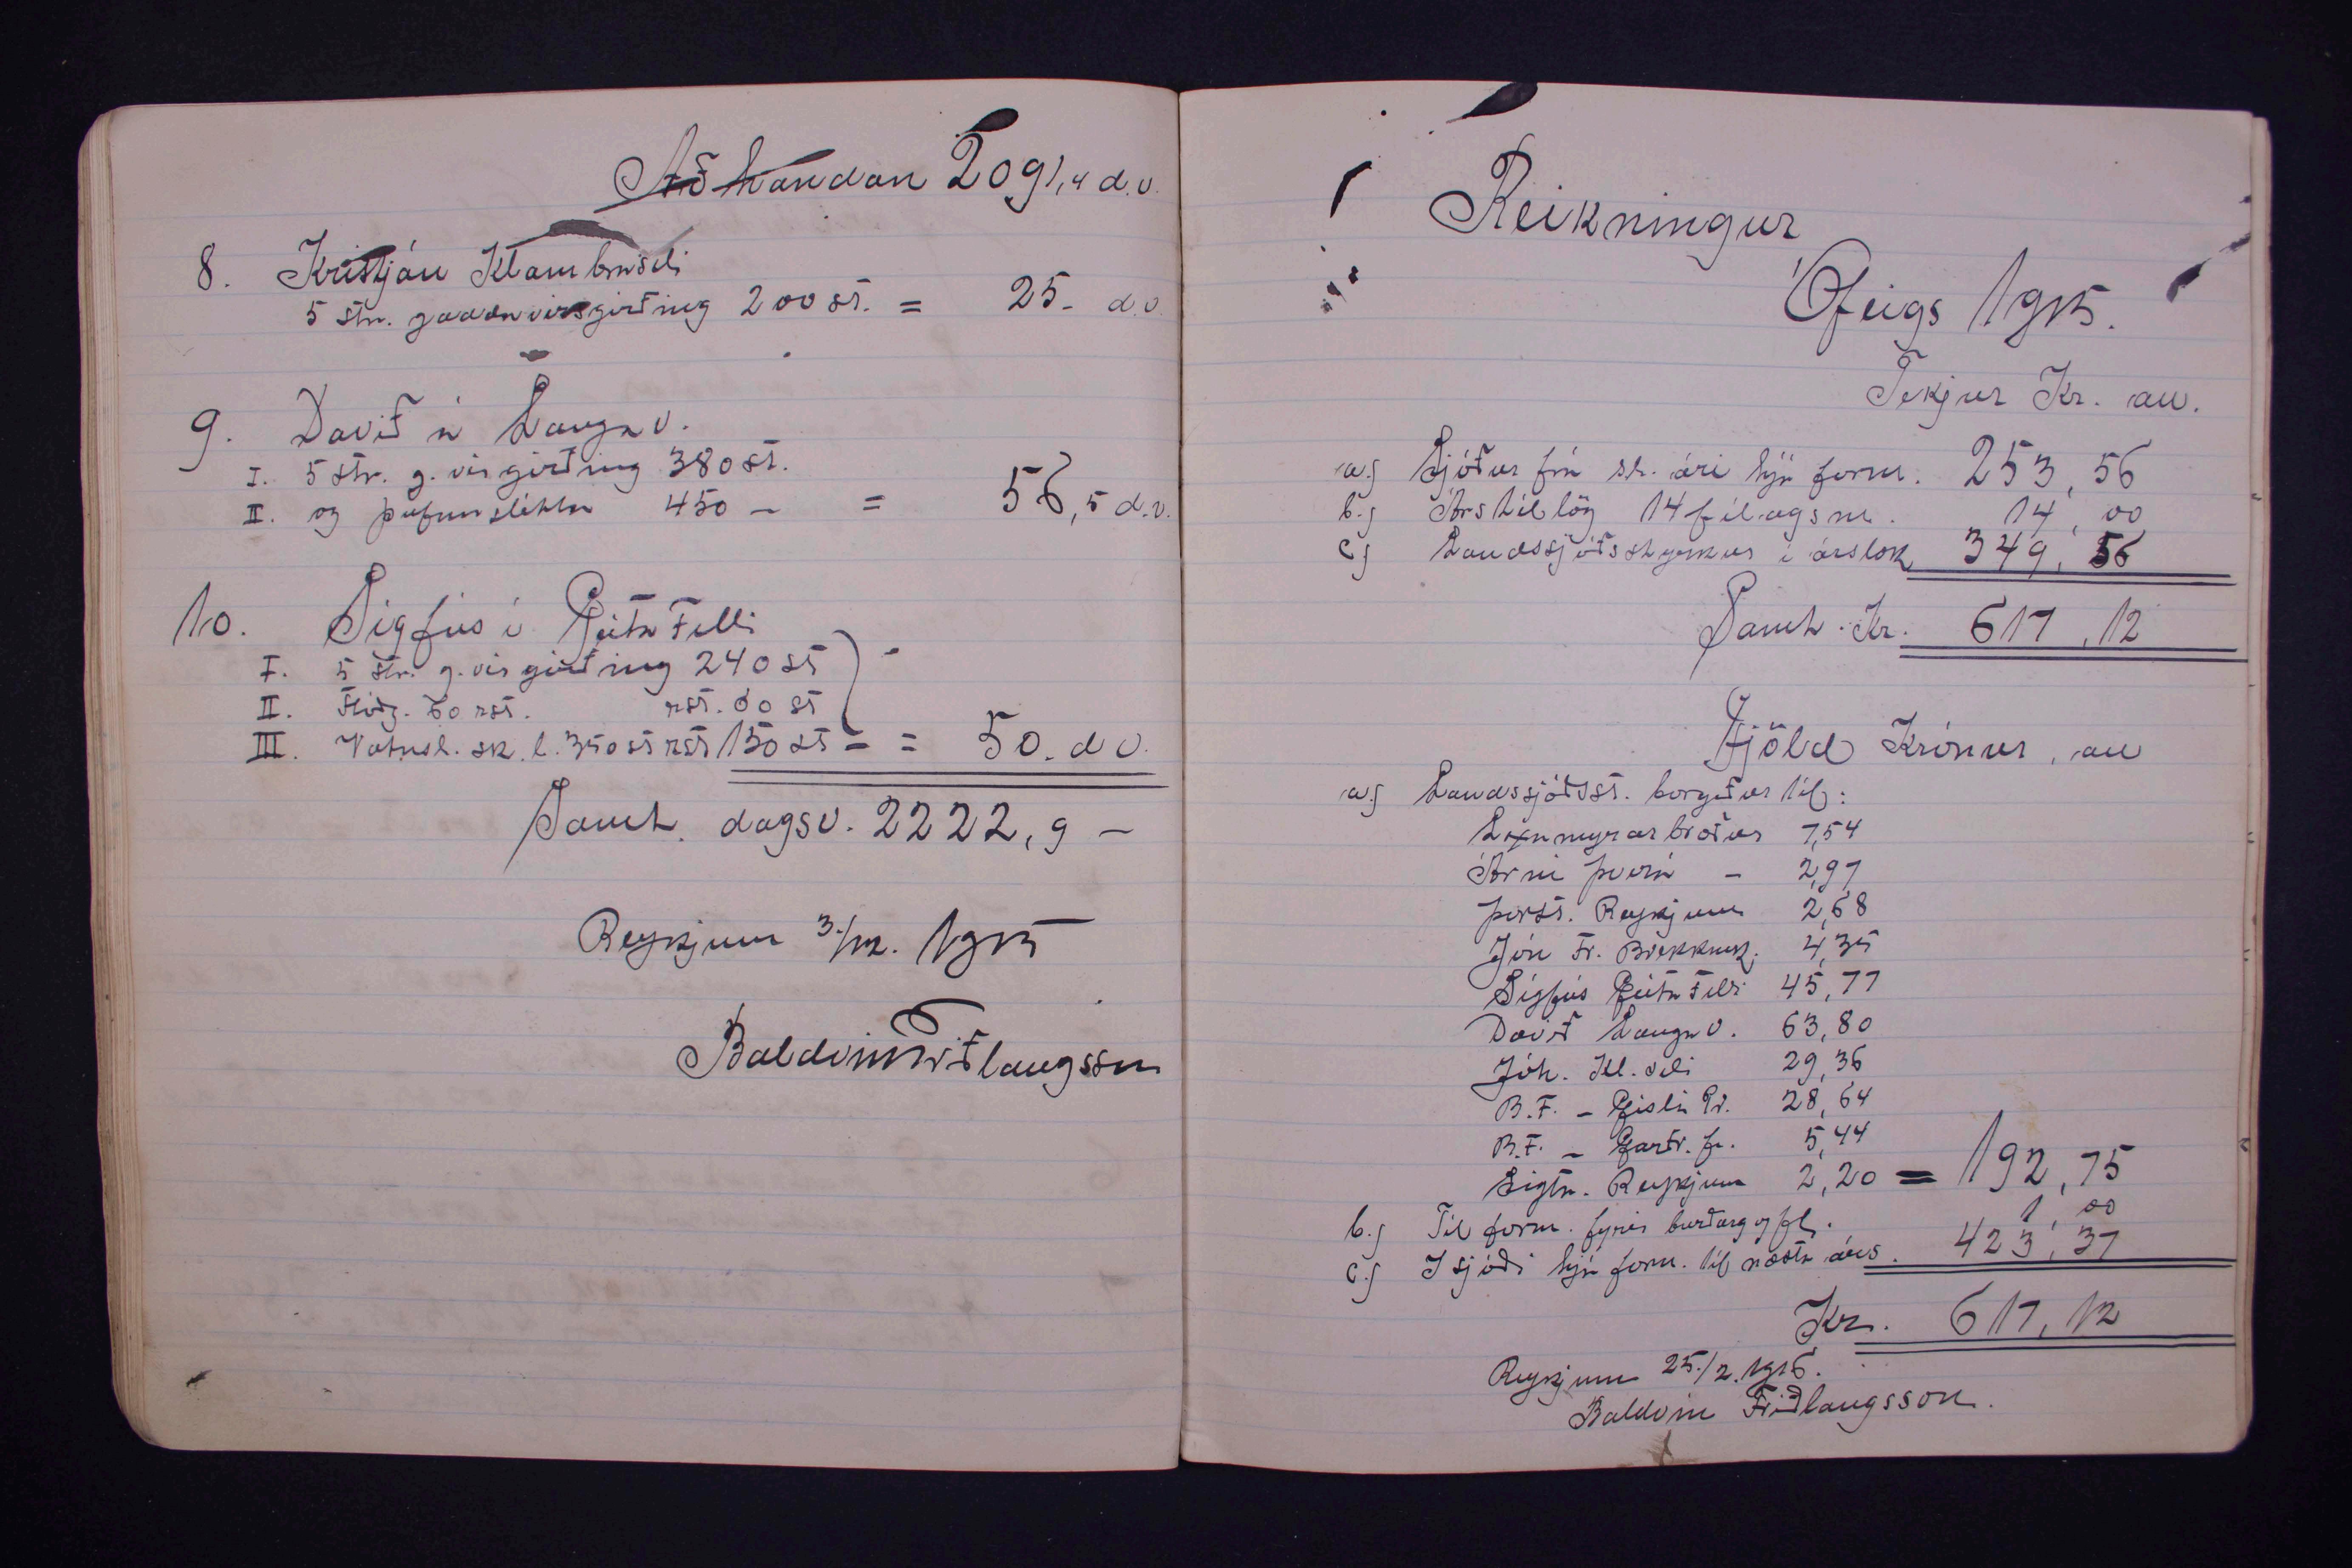 Að handan 2091,4 d.v.
8. Kristján Klambruseli
5 str. gaddavirsgirðing 200 st. = 25- d.v.
9. Davíð á Langav.
I. 5 str. g. vir girðing 380 st.
II. og þúfnasléttu 450 - = 56,5 d.v.
10. Sigfús í Geita Felli
I. 5 str. g. vir girðing 240 st
II. 60 rst. rst. 60 st
III. Vatnsl. sk. l. 350 st rst 150 st - = 50. d v.
Samt. dagsv. 2222,9 -
Reykjum 3./12. 1915
Baldvin Friðlaugsson
Reikningur
Ófeigs 1915.
Tekjur Kr. au.
a.) Sjóður frá s.l. ári hjá form. 253,56
b.) Árstillög 14 félagsm. 14,00
c) Landssjóðsstyrkur í árslok 349,56
Samt. Kr. 617,12
Gjöld Krónur, au
a.) Landssjóðsst. borgaður til:
Laxamýrarbræður 7,54
Árni Þverá - 2,97
Þorst. Reykjum 2,68
Jón Fr. Brekknak. 4,35
Sigfús Geita Felli 45,77
Davíð Langav. 63,80
Jóh. Kl. seli 29,36
B.F. - Gísla Gr. 28,64
B.F. - Garðr. fr. 5,44
Sigtr. Reykjum 2,20 = 192,75
b.) Til form. fyrir burðarg. o fl. 1,00
c.) I sjóði hjá form. til næsta árs. 423,37
Kr. 617,12
Reykjum 25./2. 1916.
Baldvin Friðlaugsson.